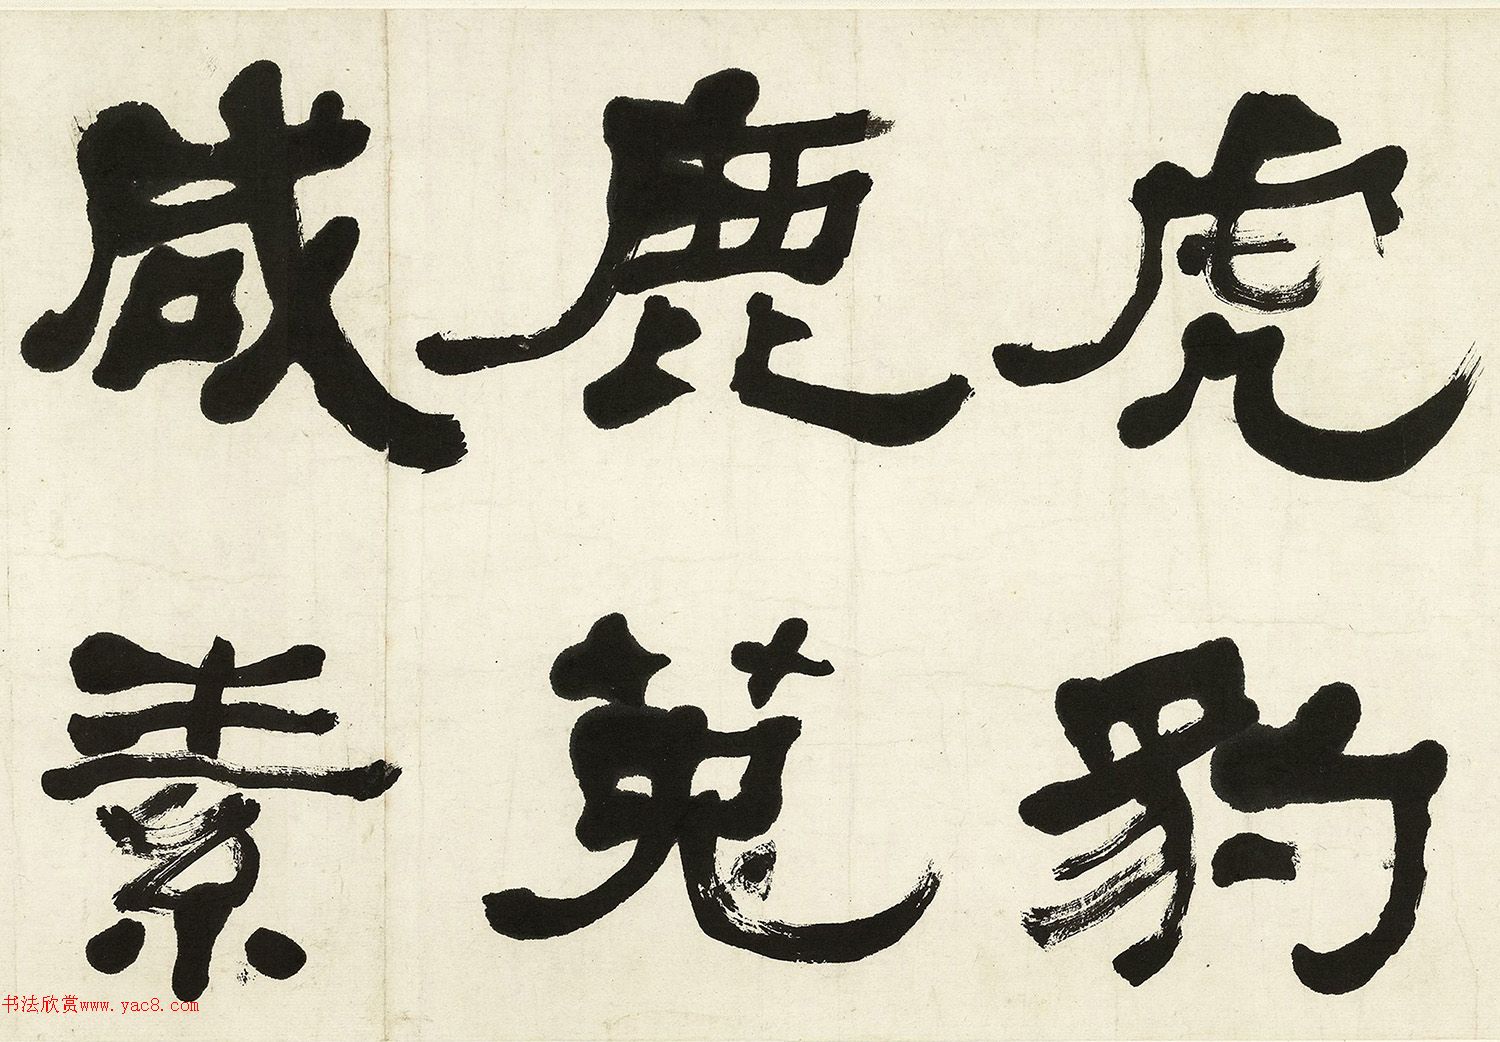 虎豹
鹿菟
咸素
书法欣赏www.yac8.com